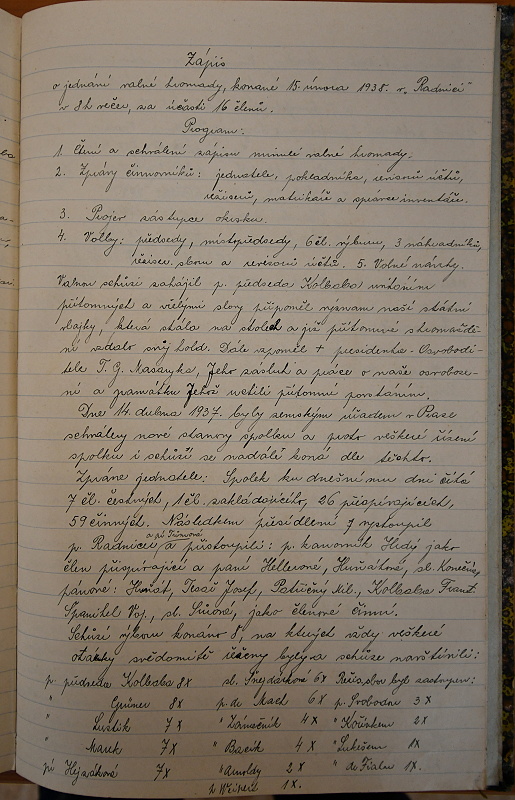 Zápis
o jednání valné hromady, konané 15. února 1938. v "Radnici"
v 8 h večer, za účasti 16 členů.
Program:
1. Čtení a schválení zápisu minulé valné hromady.
2. Zprávy činovníků: jednatele, pokladníka, revisorů účtů,
režisérů, matrikáře a správce inventáře.
3. Projev zástupce okrsku.
4. Volby: předsedy, místopředsedy, 6 čl. výboru, 3 náhradníků,
režisér. sboru a revisorů účtů. 5. Volné návrhy.
Valnou schůzi zahájil p. předseda Kolbaba uvítáním
přítomných a vřelými slovy připoměl význam naší státní
vlajky, která stála na stolech a jíž přítomné shromáždě-
ní vzdalo svůj hold. Dále vzpoměl + presidenta-Osvobodi-
tele T. G. Masaryka, Jeho zásluh a práce o naše osvoboze-
ní a památku Jehož uctili přítomní povstáním.
Dnes 14. dubna 1937. byly zemským úřadem v Praze
schváleny nové stanovy spolku a proto veškeré řízení
spolku i schůzí se nadále koná dle těchto.
Zpráva jednatele: Spolek ku dnešnímu dni čítá
7 čl. čestných, 1 čl. zakládajícího, 26 přispívajících,
59 činných. Následkem přesídlení 7 vystoupil
a pí
p. Radnicu a přistoupili: p. kanovník Hudý jako
člen přispívající a paní Hellerová, Huňátová, sl. Konečná,
pánové: Huňát, Tesař Josef, Patřičný Mil., Kolbaba Frant.
Španihel Voj., sl. jako členové činní.
Schůzí výboru konáno 8, na kterých vždy veškeré
otázky svědomitě řešeny byly a schůze navštívili:
p. předseda Kolbaba 8x sl. Šnejdárková 6x Režis. sbor byl zastoupen:
" Gruner 8x p. de Mach 6x p. Svoboda 3x
" Lustik 7x " Zámečník 4x " Kouřízkem 2x
" Mauk 7x " Bacík 4x " Lukešem 1x
pí Hejzáková 7x " Arnoldy 2x " de Fialu 1x.
p. 1x.